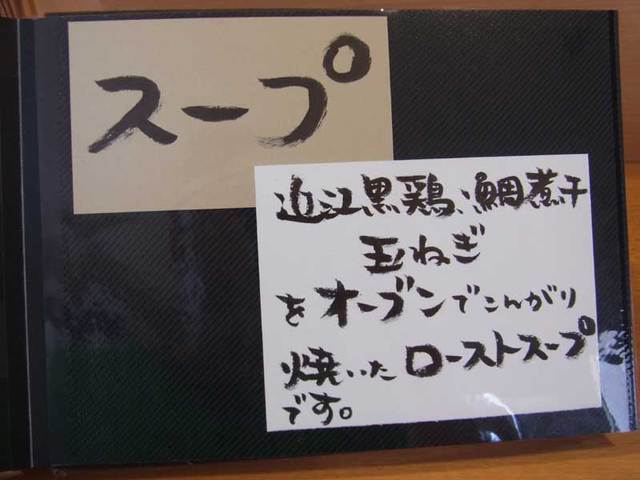 スープ
近江黒鶏、鯛煮干
玉ねぎ
をオーブンでこんがり
焼いたローストスープ
です。